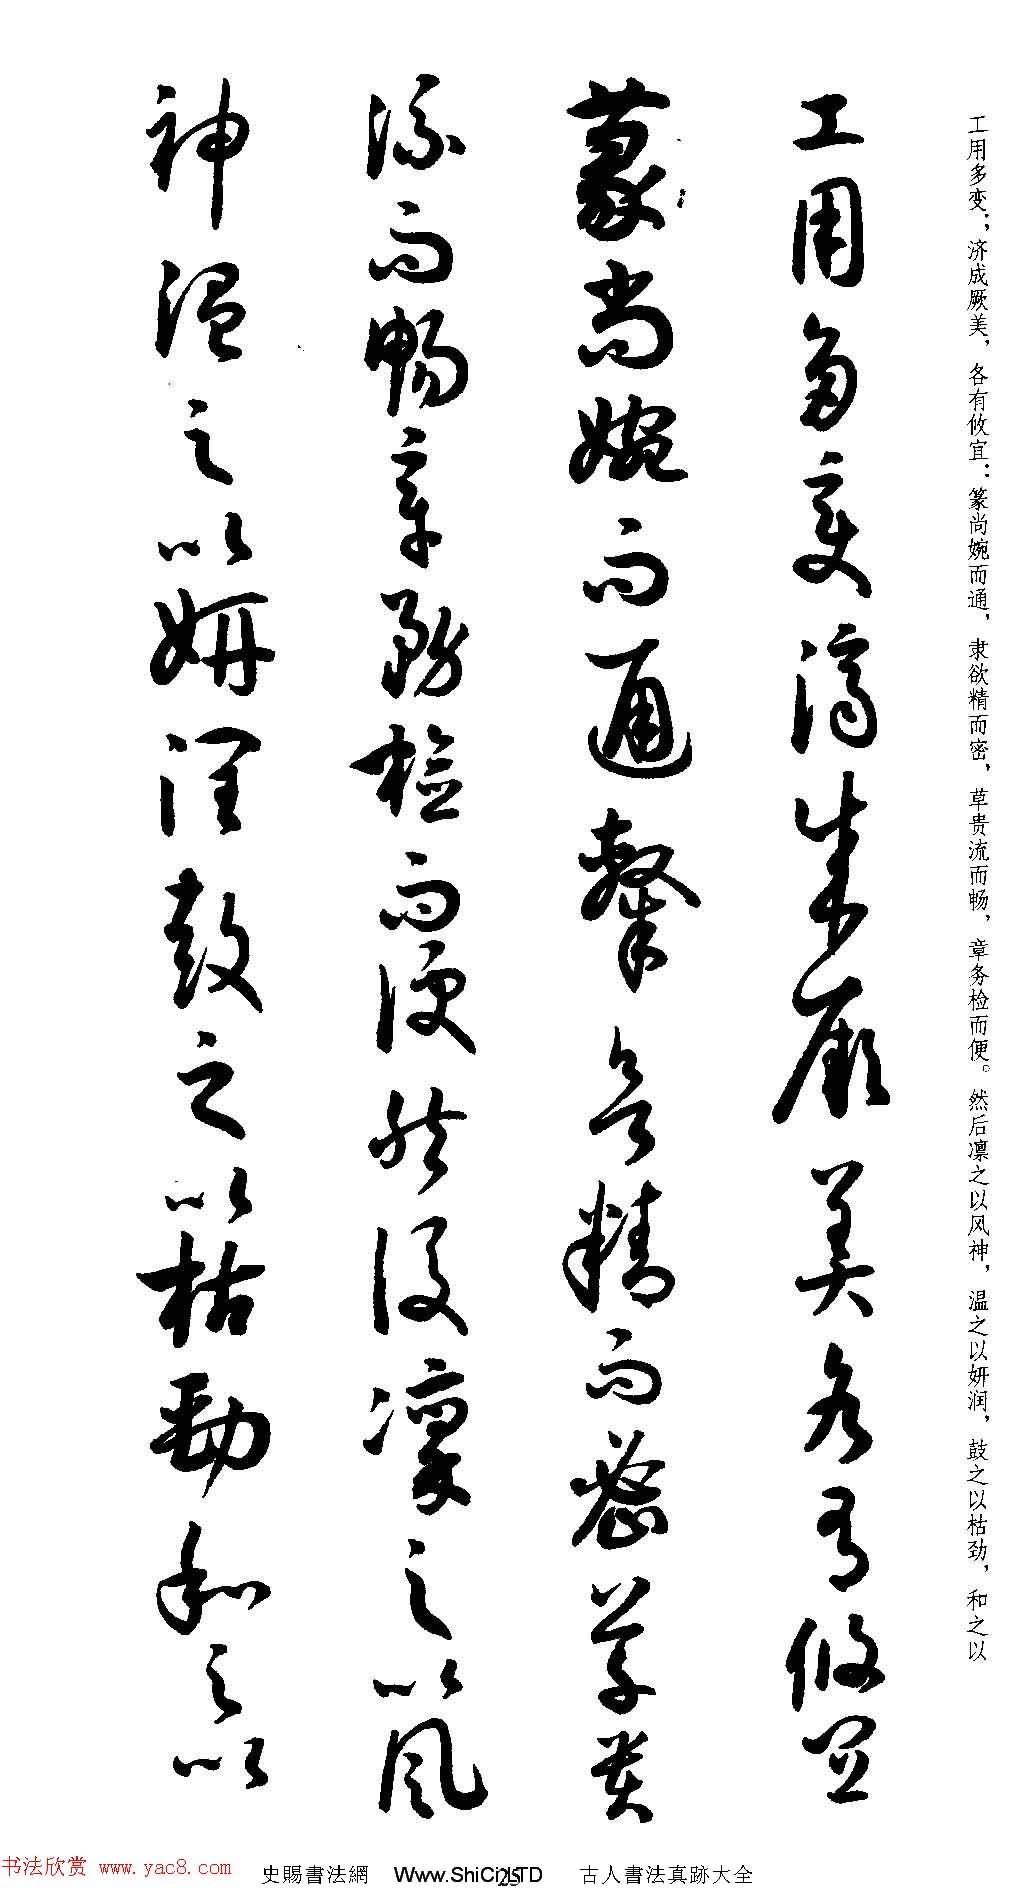 工用多变；济成厥美，各有攸宜：篆尚婉而通，隶欲精而密，草贵流而畅，章务检而便。然后凛之以风神，温之以妍润，鼓之以枯劲，和之以
工用多變濟成厥美各有攸宜
篆尚婉而通隸欲精而密草貴
流而暢章務檢而便然後凛之以風
神温之以妍潤鼓之以枯勁和之以
书法欣赏 www.yac8.com
史賜書法網 Www.ShiCi.LTD 古人書法真跡大全
25